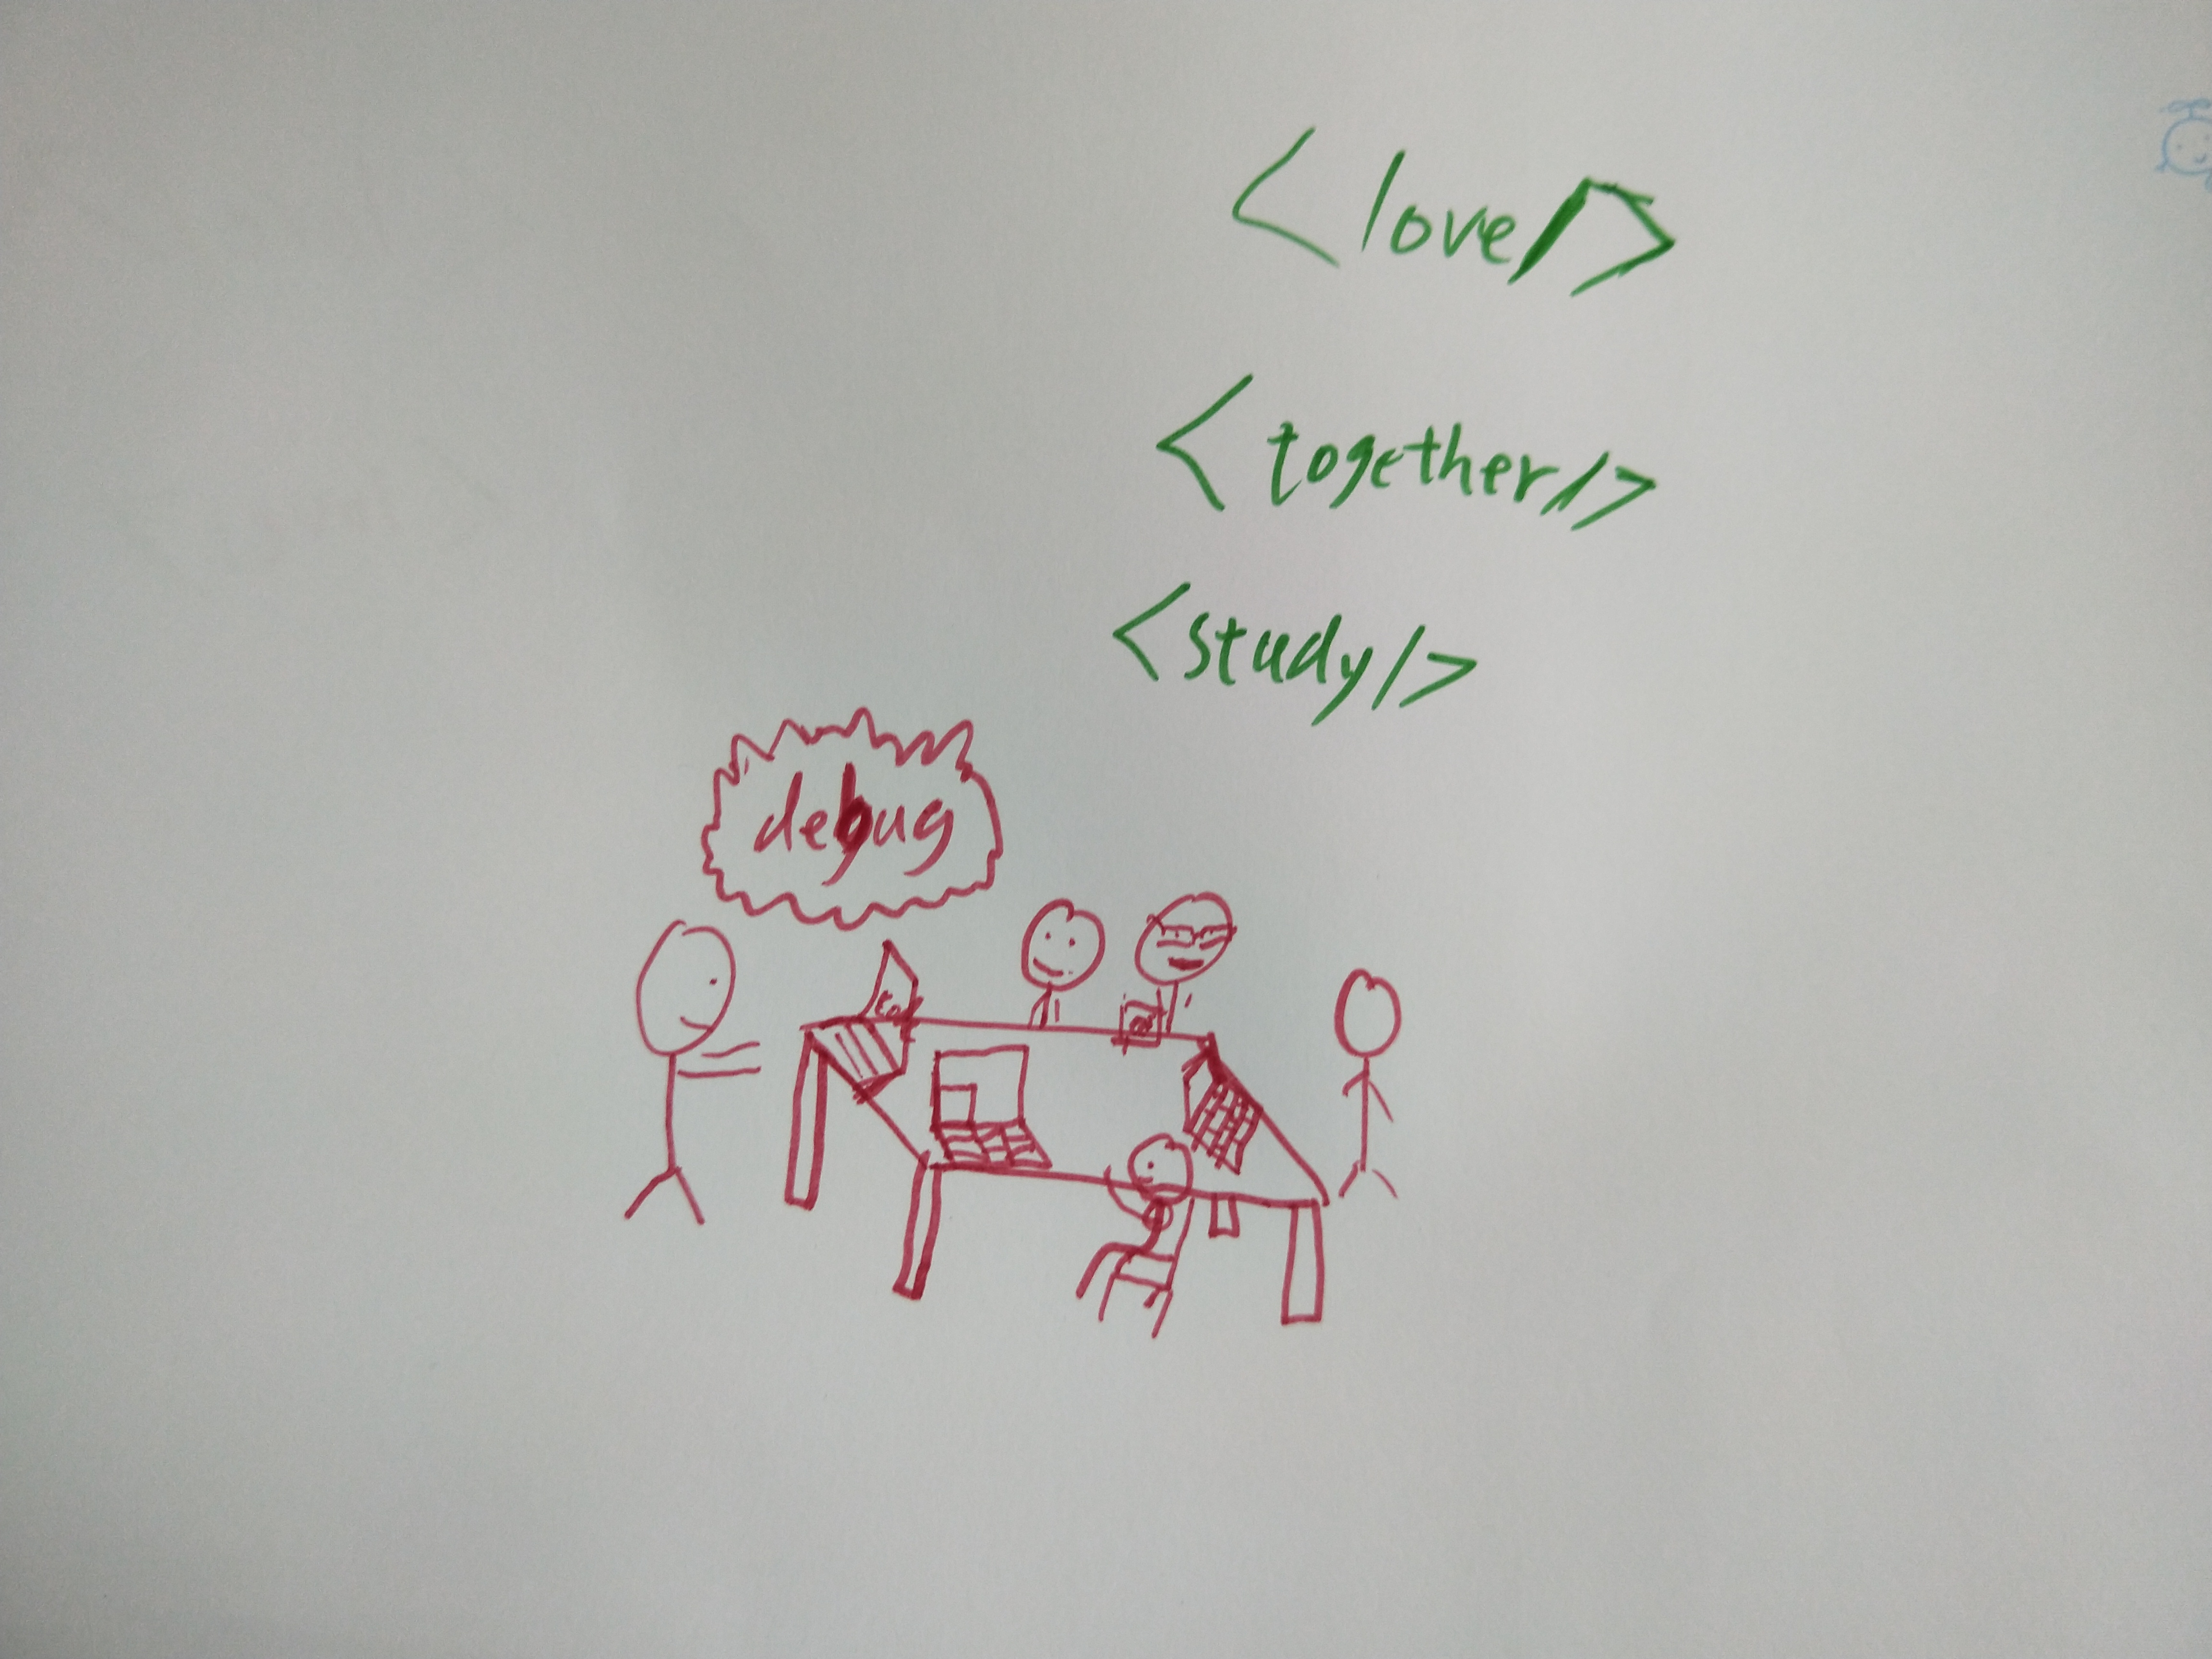 <love/>
<together/>
<study/>
debug